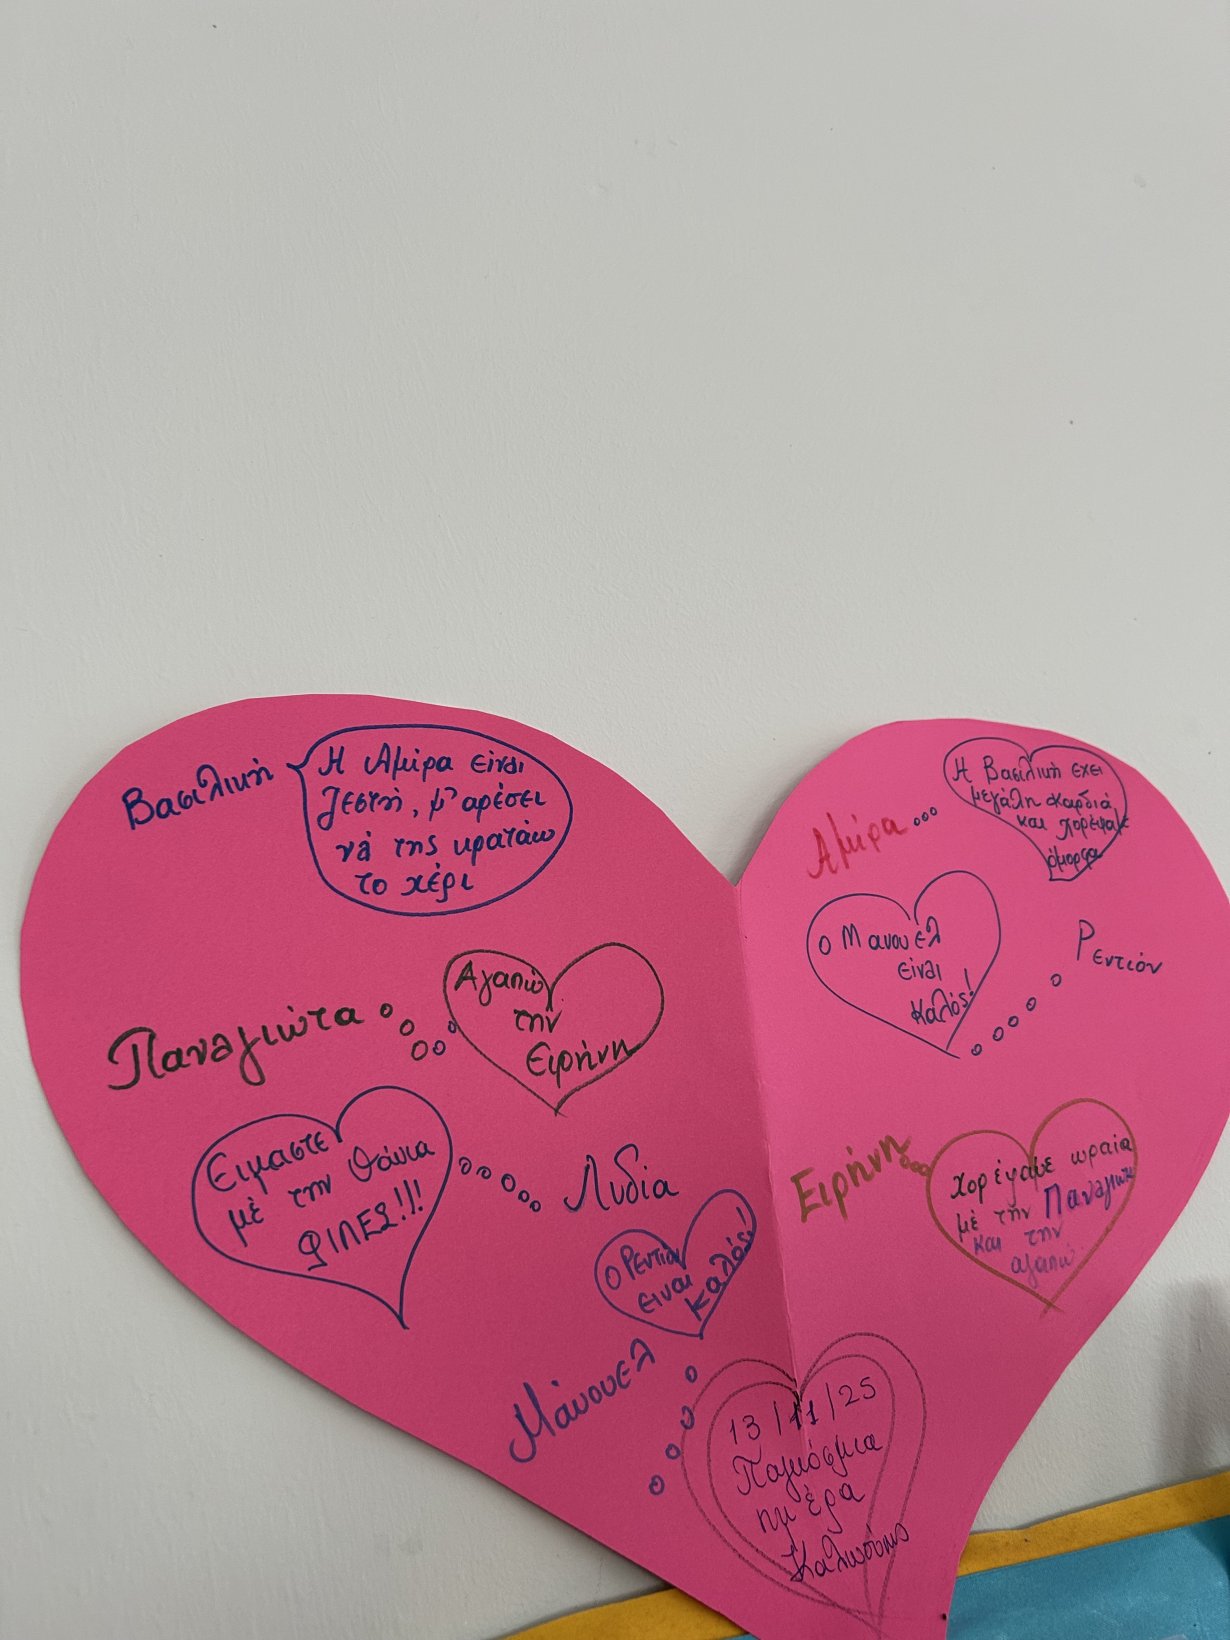 Βασιλική
Η Αμίρα είναι
ζεστή, μ' αρέσει
νά της κρατάω
το χέρι
Παναγιώτα
Αγαπώ
την
Ειρήνη
Ειμαστε
μέ την Θάνια
ΦΙΛΕΣ!!!
Λυδία
Ο Ρεντιόν
ειναι
καλός!
Μάνουελ
Αμίρα...
Η Βασιλική εχει
μεγάλη καρδιά
και χορεψαμε
όμορφα
Ο Μανουέλ
είναι
καλός!
Ρεντιόν
Ειρήνη...
χορέψαμε ωραία
μέ τήν Παναγιώτα
και την
αγαπώ
13/11/25
Παγκόσμια
ημέρα
Καλωσύνης